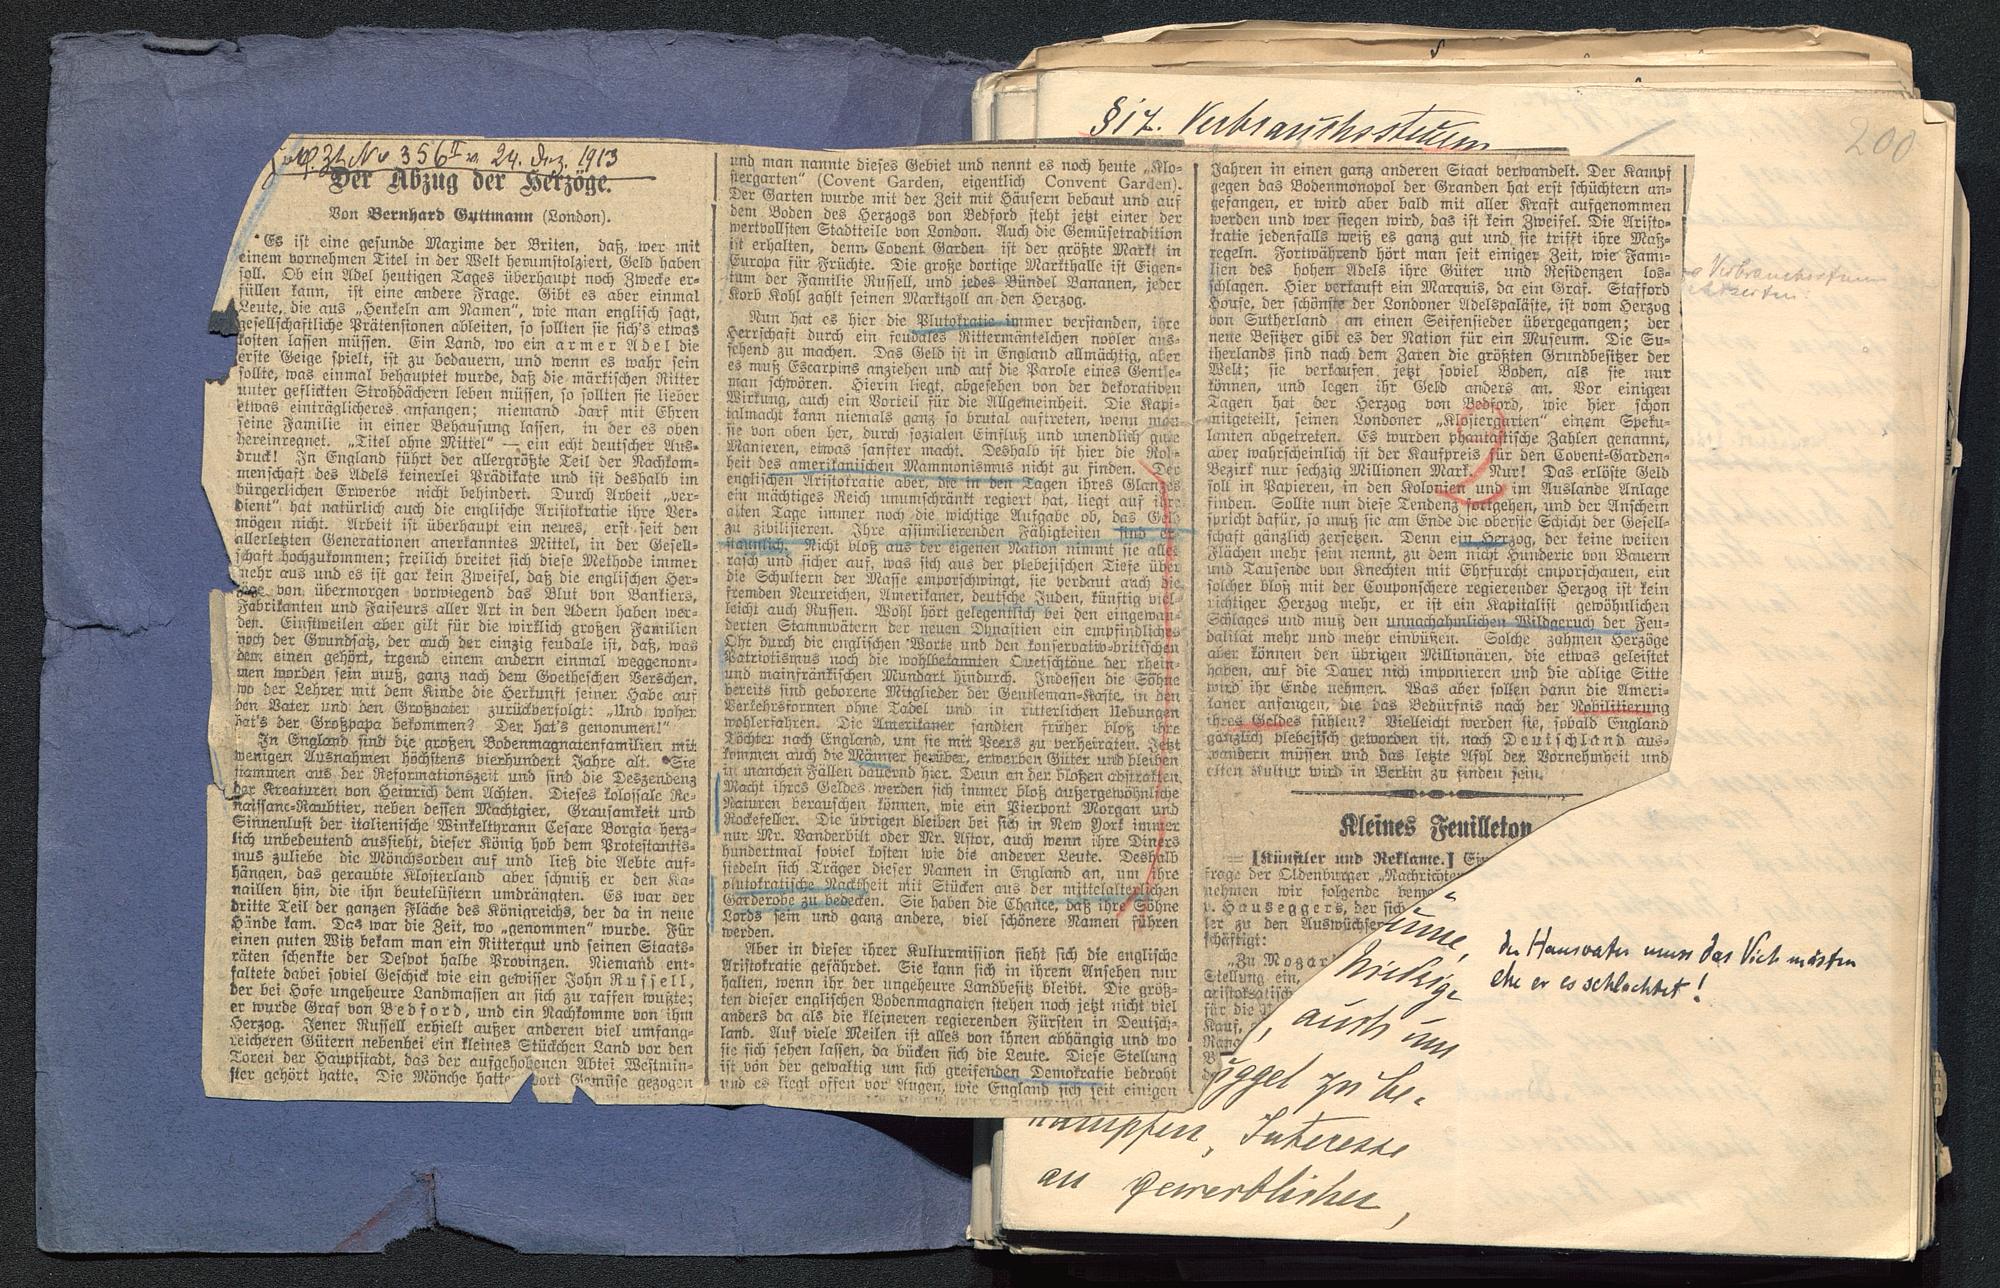 §17. Verbrauchssteuern
200
Verbrauchssteuern
Nr 356 II v. 24. Dez. 1913
Der Abzug der Herzöge.
Von Bernhard Guttmann (London).
Es ist eine gesunde Maxime der Briten, daß, wer mit
einem vornehmen Titel in der Welt herumstolziert, Geld haben
soll. Ob ein Adel heutigen Tages überhaupt noch Zwecke er-
füllen kann, ist eine andere Frage. Gibt es aber einmal
Leute, die aus „Henkeln am Namen“, wie man englisch sagt,
gesellschaftliche Prätensionen ableiten, so sollten sie sich's etwas
kosten lassen müssen. Ein Land, wo ein armer Adel die
erste Geige spielt, ist zu bedauern, und wenn es wahr sein
sollte, was einmal behauptet wurde, daß die märkischen Ritter
unter geflickten Strohdächern leben müssen, so sollten sie lieber
etwas einträglicheres anfangen; niemand darf mit Ehren
seine Familie in einer Behausung lassen, in der es oben
hereinregnet. „Titel ohne Mittel“ — ein echt deutscher Aus-
druck! In England führt der allergrößte Teil der Nachkom-
menschaft des Adels keinerlei Prädikate und ist deshalb im
bürgerlichen Erwerbe nicht behindert. Durch Arbeit „ver-
dient“ hat natürlich auch die englische Aristokratie ihre Ver-
mögen nicht. Arbeit ist überhaupt ein neues, erst seit den
allerletzten Generationen anerkanntes Mittel, in der Gesell-
schaft hochzukommen; freilich breitet sich diese Methode immer
mehr aus und es ist gar kein Zweifel, daß die englischen Her-
zöge von übermorgen vorwiegend das Blut von Bankiers,
Fabrikanten und Faiseurs aller Art in den Adern haben wer-
den. Einstweilen aber gilt für die wirklich großen Familien
noch der Grundsatz, der auch der einzig feudale ist, daß, was
dem einen gehört, irgend einem andern einmal weggenom-
men worden sein muß, ganz nach dem Goetheschen Verschen,
wo der Lehrer mit dem Kinde die Herkunft seiner Habe auf
den Vater und den Großvater zurückverfolgt: „Und woher
hat's der Großpapa bekommen? Der hat's genommen!“
In England sind die großen Bodenmagnatenfamilien mit
wenigen Ausnahmen höchstens vierhundert Jahre alt. Sie
stammen aus der Reformationszeit und sind die Deszendenz
der Kreaturen von Heinrich dem Achten. Dieses kolossale Re-
naissance-Raubtier, neben dessen Machtgier, Grausamkeit und
Sinnenlust der italienische Winkeltyrann Cesare Borgia herz-
lich unbedeutend aussieht, dieser König hob dem Protestantis-
mus zuliebe die Mönchsorden auf und ließ die Aebte auf-
hängen, das geraubte Klosterland aber schmiß er den Ka-
naillen hin, die ihn beutelüstern umdrängten. Es war der
dritte Teil der ganzen Fläche des Königreichs, der da in neue
Hände kam. Das war die Zeit, wo „genommen“ wurde. Für
einen guten Witz bekam man ein Rittergut und seinen Staats-
räten schenkte der Despot halbe Provinzen. Niemand ent-
faltete dabei soviel Geschick wie ein gewisser John Russell,
der bei Hofe ungeheure Landmassen an sich zu raffen wußte;
er wurde Graf von Bedford, und ein Nachkomme von ihm
Herzog. Jener Russell erhielt außer anderen viel umfang-
reicheren Gütern nebenbei ein kleines Stückchen Land vor den
Toren der Hauptstadt, das der aufgehobenen Abtei Westmin-
ster gehört hatte. Die Mönche hatten dort Gemüse gezogen
und man nannte dieses Gebiet und nennt es noch heute „Klo-
stergarten“ (Covent Garden, eigentlich Convent Garden).
Der Garten wurde mit der Zeit mit Häusern bebaut und auf
dem Boden des Herzogs von Bedford steht jetzt einer der
wertvollsten Stadtteile von London. Auch die Gemüsetradition
ist erhalten, denn Covent Garden ist der größte Markt in
Europa für Früchte. Die große dortige Markthalle ist Eigen-
tum der Familie Russell, und jedes Bündel Bananen, jeder
Korb Kohl zahlt seinen Marktzoll an den Herzog.
Nun hat es hier die Plutokratie immer verstanden, ihre
Herrschaft durch ein feudales Rittermäntelchen nobler aus-
sehend zu machen. Das Geld ist in England allmächtig, aber
es muß Escarpins anziehen und auf die Parole eines Gentle-
man schwören. Hierin liegt, abgesehen von der dekorativen
Wirkung, auch ein Vorteil für die Allgemeinheit. Die Kapi-
talmacht kann niemals ganz so brutal auftreten, wenn man
sie von oben her, durch sozialen Einfluß und unendlich gute
Manieren, etwas sanfter macht. Deshalb ist hier die Roh-
heit des amerikanischen Mammonismus nicht zu finden. Der
englischen Aristokratie aber, die in den Tagen ihres Glanzes
ein mächtiges Reich unumschränkt regiert hat, liegt auf ihre
alten Tage immer noch die wichtige Aufgabe ob, das Geld
zu zivilisieren. Ihre assimilierenden Fähigkeiten sind er-
staunlich. Nicht bloß aus der eigenen Nation nimmt sie alles
rasch und sicher auf, was sich aus der plebejischen Tiefe über
die Schultern der Masse emporschwingt, sie verdaut auch die
fremden Neureichen, Amerikaner, deutsche Juden, künftig viel-
leicht auch Russen. Wohl hört gelegentlich bei den eingewan-
derten Stammvätern der neuen Dynastien ein empfindliches
Ohr durch die englischen Worte und den konservativ-britischen
Patriotismus noch die wohlbekannten Quetschtöne der rhein-
und mainfränkischen Mundart hindurch. Indessen die Söhne
bereits sind geborene Mitglieder der Gentleman-Kaste, in den
Verkehrsformen ohne Tadel und in ritterlichen Uebungen
wohlerfahren. Die Amerikaner sandten früher bloß ihre
Töchter nach England, um sie mit Peers zu verheiraten. Jetzt
kommen auch die Männer herüber, erwerben Güter und bleiben
in manchen Fällen dauernd hier. Denn an der bloßen abstrakten
Macht ihres Geldes werden sich immer bloß außergewöhnliche
Naturen berauschen können, wie ein Pierpont Morgan und
Rockefeller. Die übrigen bleiben bei sich in New York immer
nur Mr. Vanderbilt oder Mr. Astor, auch wenn ihre Diners
hundertmal soviel kosten wie die anderer Leute. Deshalb
siedeln sich Träger dieser Namen in England an, um ihre
plutokratische Nacktheit mit Stücken aus der mittelalterlichen
Garderobe zu bedecken. Sie haben die Chance, daß ihre Söhne
Lords sein und ganz andere, viel schönere Namen führen
werden.
Aber in dieser ihrer Kulturmission sieht sich die englische
Aristokratie gefährdet. Sie kann sich in ihrem Ansehen nur
halten, wenn ihr der ungeheure Landbesitz bleibt. Die größ-
ten dieser englischen Bodenmagnaten stehen noch jetzt nicht viel
anders da als die kleineren regierenden Fürsten in Deutsch-
land. Auf viele Meilen ist alles von ihnen abhängig und wo
sie sich sehen lassen, da bücken sich die Leute. Diese Stellung
ist von der gewaltig um sich greifenden Demokratie bedroht
und es liegt offen vor Augen, wie England sich seit einigen
Jahren in einen ganz anderen Staat verwandelt. Der Kampf
gegen das Bodenmonopol der Granden hat erst schüchtern an-
gefangen, er wird aber bald mit aller Kraft aufgenommen
werden und wer siegen wird, das ist kein Zweifel. Die Aristo-
kratie jedenfalls weiß es ganz gut und sie trifft ihre Maß-
regeln. Fortwährend hört man seit einiger Zeit, wie Fami-
lien des hohen Adels ihre Güter und Residenzen los-
schlagen. Hier verkauft ein Marquis, da ein Graf. Stafford
House, der schönste der Londoner Adelspaläste, ist vom Herzog
von Sutherland an einen Seifensieder übergegangen; der
neue Besitzer gibt es der Nation für ein Museum. Die Su-
therlands sind nach dem Zaren die größten Grundbesitzer der
Welt; sie verkaufen jetzt soviel Boden, als sie nur
können, und legen ihr Geld anders an. Vor einigen
Tagen hat der Herzog von Bedford, wie hier schon
mitgeteilt, seinen Londoner „Klostergarten“ einem Speku-
lanten abgetreten. Es wurden phantastische Zahlen genannt,
aber wahrscheinlich ist der Kaufpreis für den Covent-Garden-
Bezirk nur sechzig Millionen Mark. Nur! Das erlöste Geld
soll in Papieren, in den Kolonien und im Auslande Anlage
finden. Sollte nun diese Tendenz fortgehen, und der Anschein
spricht dafür, so muß sie am Ende die oberste Schicht der Gesell-
schaft gänzlich zersetzen. Denn ein Herzog, der keine weiten
Flächen mehr sein nennt, zu dem nicht Hunderte von Bauern
und Tausende von Knechten mit Ehrfurcht emporschauen, ein
solcher bloß mit der Couponschere regierender Herzog ist kein
richtiger Herzog mehr, er ist ein Kapitalist gewöhnlichen
Schlages und muß den unnachahmlichen Wildgeruch der Feu-
dalität mehr und mehr einbüßen. Solche zahmen Herzöge
aber können den übrigen Millionären, die etwas geleistet
haben, auf die Dauer nicht imponieren und die adlige Sitte
wird ihr Ende nehmen. Was aber sollen dann die Ameri-
kaner anfangen, die das Bedürfnis nach der Nobilitierung
ihres Geldes fühlen? Vielleicht werden sie, sobald England
gänzlich plebejisch geworden ist, nach Deutschland aus-
wandern müssen und das letzte Asyl der Vornehmheit und
alten Kultur wird in Berlin zu finden sein.
2
Kleines Feuilleton
— [Künstler und Reklame.]
frage der Oldenburger „Nachrichten
nehmen wir folgende
v. Hauseggers, der sich
ler zu den Auswüchsen
schäftigt:
„Zu Mozart
Stellung ein,
aristokratisch
für die
Kauf,
der Hausvater muss das Vieh mästen
ehe er es schlachtet!
, auch um
zu be-
kämpfen, Interesse
an gewerblicher,